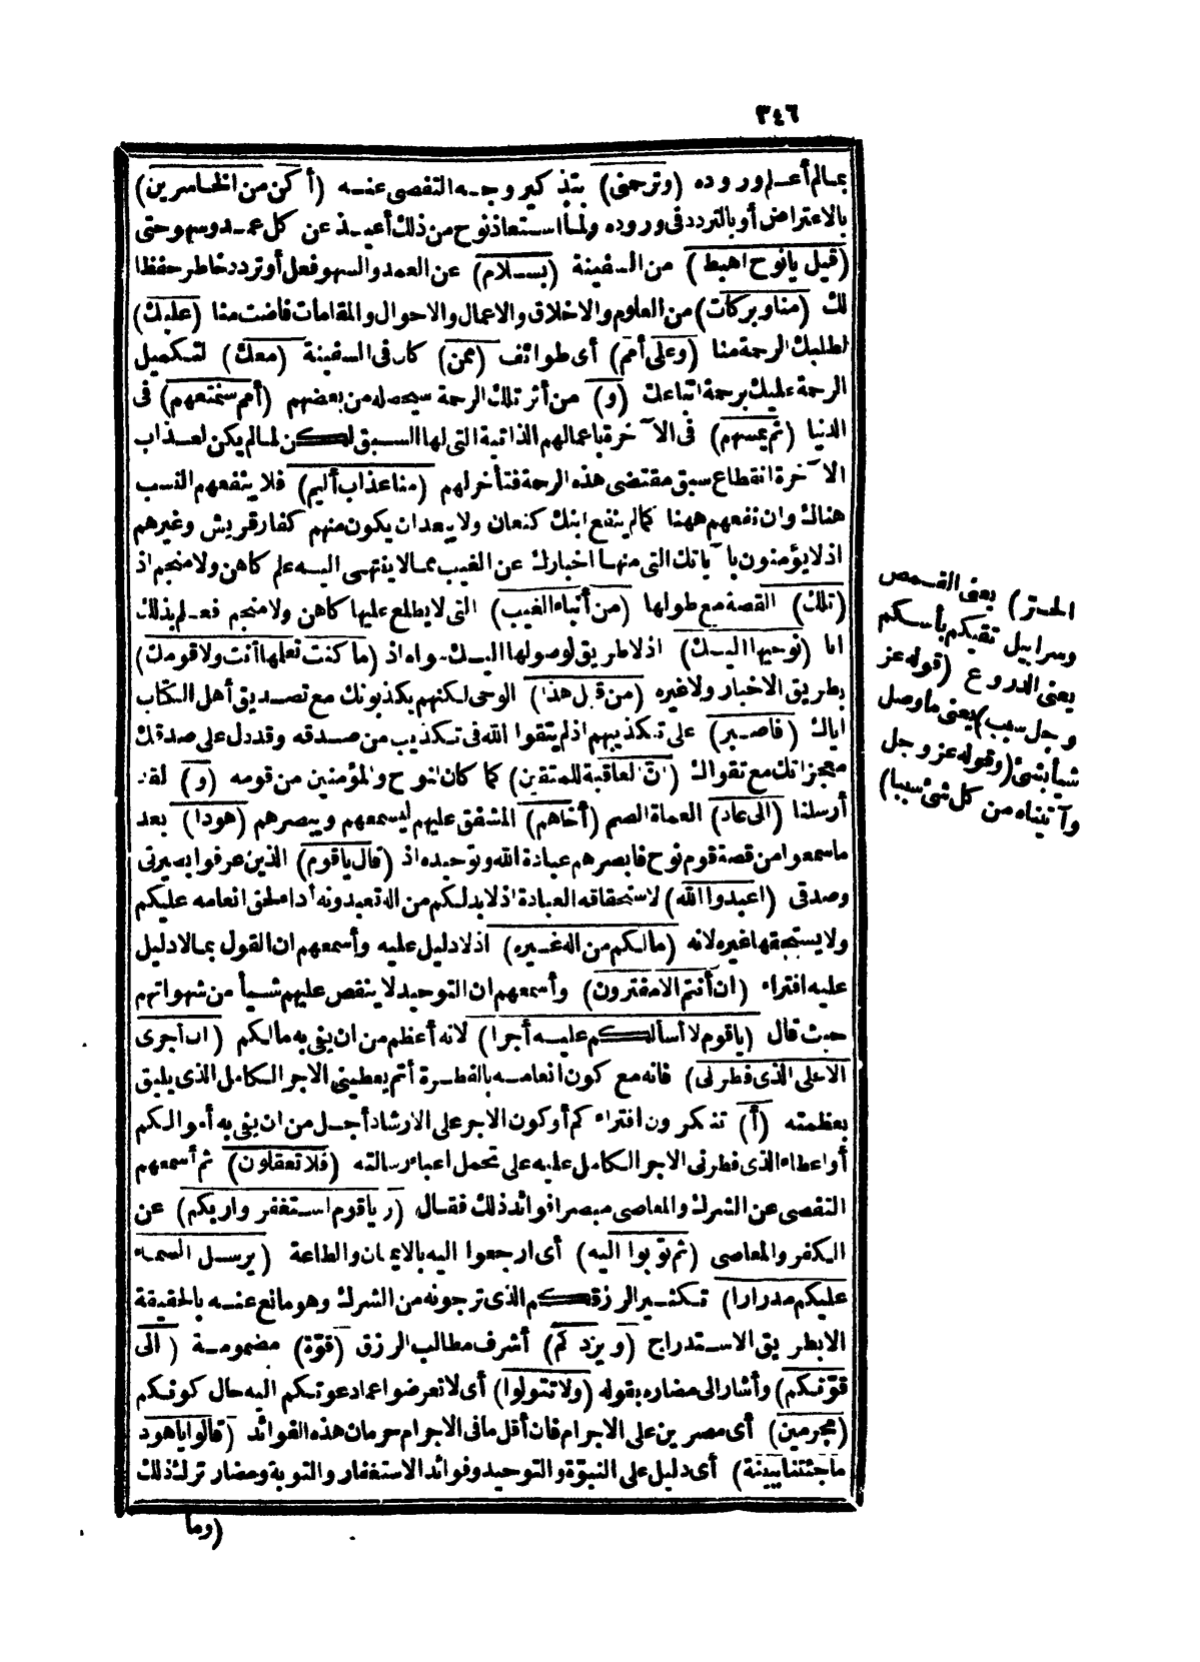 ٣٤٦
بمالم أعلم وروده (وترحمنى) بتذكير وجه التفصى عنه (أكن من الخاسرين)
بالاعتراض أو بالتردد فى وروده ولما استعاذ نوح من ذلك أعيذ عن كل عمد وسهو حتى
(قيل يا نوح اهبط) من السفينة (بسلام) عن العمد والسهو فعل أو تردد خاطر حفظا
لك (منا وبركات) من العلوم والاخلاق والاعمال والاحوال والمقامات فاضت منا (عليك)
لطلبك الرحمة منا (وعلى أمم) أى طوائف (ممن) كان فى السفينة (معك) لتكميل
الرحمة عليك برحمة اتباعك (و) من أثر تلك الرحمة سيحصل من بعضهم (أمم سنمتعهم) فى
الدنيا (ثم يمسهم) فى الآخرة باعمالهم الذاتية التى لها السبق لكن لما لم يكن لعذاب
الآخرة انقطاع سبق مقتضى هذه الرحمة فتأخر لهم (منا عذاب أليم) فلا ينفعهم النسب
هناك وان نفعهم ههنا كمالم ينفع ابنك كنعان ولا يبعد ان يكون منهم كفار قريش وغيرهم
اذ لا يؤمنون بآياتك التى منها اخبارك عن الغيب مما لا ينتهى اليه علم كاهن ولا منجم اذ
(تلك) القصة مع طولها (من أنباء الغيب) التى لا يطلع عليها كاهن ولا منجم فعلم بذلك
انا (نوحيها اليك) اذ لا طريق لوصولها اليك سواه اذ (ما كنت تعلمها أنت ولا قومك)
بطريق الاخبار ولا غيره (من قبل هذا) الوحى لكنهم يكذبونك مع تصديق أهل الكتاب
اياك (فاصبر) على تكذيبهم اذ لم يتقوا الله فى تكذيب من صدقه وقد دل على صدقك
معجزاتك مع تقواك (ان العاقبة للمتقين) كما كان لنوح والمؤمنين من قومه (و) لقد
أرسلنا (الى عاد) العماة الصم (أخاهم) المشفق عليهم ليسمعهم ويبصرهم (هودا) بعد
ما سمعوا من قصة قوم نوح فابصرهم عبادة الله وتوحيده اذ (قال يا قوم) الذين عرفوا بسيرتى
وصدقى (اعبدوا الله) لاستحقاقه العبادة اذ لا بد لكم من اله تعبدونه أداء لحق انعامه عليكم
ولا يستحقها غيره لانه (ما لكم من اله غيره) اذ لا دليل عليه وأسمعهم ان القول بما لا دليل
عليه افتراء (ان أنتم الا مفترون) وأسمعهم ان التوحيد لا ينقص عليهم شيأ من شهواتهم
حيث قال (يا قوم لا أسألكم عليه أجرا) لانه أعظم من ان يفى به ما لكم (ان أجرى
الا على الذى فطرنى) فانه مع كون انعامه بالفطرة أتم يعطينى الاجر الكامل الذى يليق
بعظمته (أ) تذكرون افتراءكم أو كون الاجر على الارشاد أجل من ان يفى به أموالكم
أو اعطاء الذى فطرنى الاجر الكامل عليه على تحمل اعباء رسالته (فلا تعقلون) ثم أسمعهم
التفصى عن الشرك والمعاصى مبصرا فوائد ذلك فقال (ويا قوم استغفروا ربكم) عن
الكفر والمعاصى (ثم توبوا اليه) أى ارجعوا اليه بالايمان والطاعة (يرسل السماء
عليكم مدرارا) تكثير الرزقكم الذى ترجونه من الشرك وهو مانع عنه بالحقيقة
الا بطريق الاستدراج (ويزدكم) أشرف مطالب الرزق (قوّة) مضمومة (الى
قوّتكم) وأشار الى مضاره بقوله (ولا تتولوا) أى لا تعرضوا عما دعوتكم اليه حال كونكم
(مجرمين) أى مصرين على الاجرام فان أقل ما فى الاجرام حرمان هذه الفوائد (قالوا يا هود
ما جئتنا ببينة) أى دليل على النبوّة والتوحيد وفوائد الاستغفار والتوبة ومضار ترك ذلك
(وما
الحر) يعنى القمص
وسرابيل تقيكم بأسكم
يعنى الدروع (قوله عز
وجل سبب) يعنى ما وصل
شيأ بشئ (وقوله عز وجل
وآتيناه من كل شئ سببا)